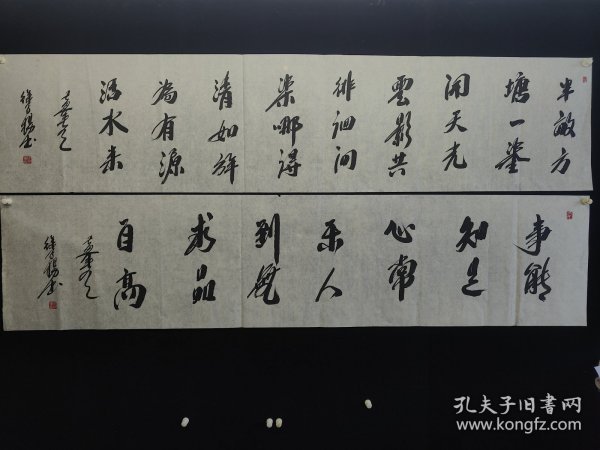 半亩方
塘一鉴
開天光
雲影共
徘徊问
渠哪得
清如許
為有源
活水来
事能
知足
心常
樂人
到無
求品
自高
孔夫子旧書网
www.kongfz.com